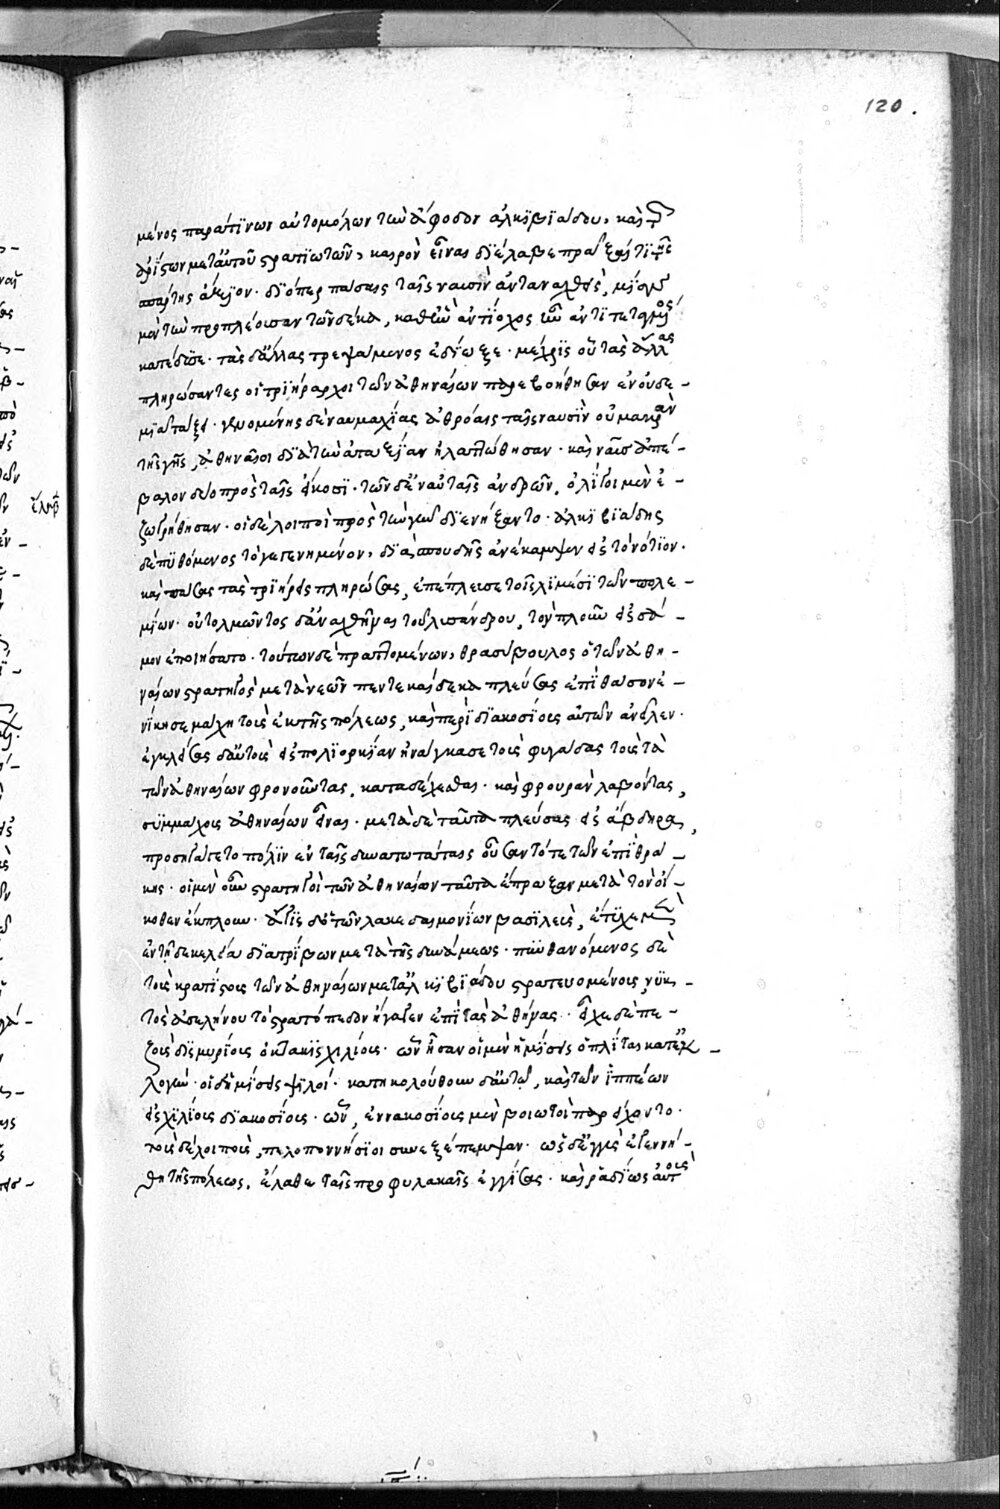 120.
μένος παρά τινων αὐτομόλων τὴν ἄφοδον ἀλκιβιάδου, καὶ τῶν
ἀρίστων μετ' αὐτοῦ στρατιωτῶν, καιρὸν εἶναι διέλαβε πρᾶξαί τι τῆς
σπάρτης ἄξιον· διόπερ πάσαις ταῖς ναυσὶν ἀνταναχθεὶς, μίαν
μὲν τῶν προπλεουσῶν τῶν δέκα, καθ' ἣν ἀντίοχος ἦν ἀντιτεταγμένος
κατέδυσε· τὰς δ' ἄλλας τρεψάμενος ἐδίωξε· μέχρις οὗ τὰς ἄλλας
πληρώσαντες οἱ τριήραρχοι τῶν ἀθηναίων παρεβοήθησαν ἐν οὐδε-
μιᾷ τάξει· γενομένης δὲ ναυμαχίας ἀθρόαις ταῖς ναυσὶν οὐ μακρὰν
τῆς γῆς, ἀθηναῖοι διὰ τὴν ἀταξίαν ἠλαττώθησαν· καὶ ναῦς ἀπέ-
βαλον δύο πρὸς ταῖς εἴκοσι· τῶν δ' ἐν αὐταῖς ἀνδρῶν, ὀλίγοι μὲν ἐ-
ζωγρήθησαν· οἱ δὲ λοιποὶ πρὸς τὴν γῆν διενήξαντο· ἀλκιβιάδης
δὲ πυθόμενος τὸ γεγενημένον, διὰ σπουδῆς ἀνέκαμψεν εἰς τὸ νότιον·
καὶ πάσας τὰς τριήρεις πληρώσας, ἐπέπλευσε τοῖς λιμέσι τῶν πολε-
μίων· οὐ τολμῶντος δ' ἀνταχθῆναι τοῦ λυσάνδρου, τὸν πλοῦν εἰς σά-
μον ἐποιήσατο· τούτων δὲ πραττομένων, θρασύβουλος ὁ τῶν ἀθη-
ναίων στρατηγὸς μετὰ νεῶν πεντεκαίδεκα πλεύσας ἐπὶ θάσον ἐ-
νίκησε μάχῃ τοὺς ἐκ τῆς πόλεως, καὶ περὶ διακοσίους αὐτῶν ἀνεῖλεν·
ἐγκλείσας δ' αὐτοὺς εἰς πολιορκίαν ἠνάγκασε τοὺς φυγάδας τοὺς τὰ
τῶν ἀθηναίων φρονοῦντας, καταδέχεσθαι· καὶ φρουρὰν λαβόντας,
συμμάχους ἀθηναίων εἶναι· μετὰ δὲ ταῦτα πλεύσας εἰς ἄβδηρα,
προσηγάγετο πόλιν ἐν ταῖς δυνατωτάταις οὖσαν τότε τῶν ἐπὶ θρά-
κης· οἱ μὲν οὖν στρατηγοὶ τῶν ἀθηναίων ταῦτα ἔπραξαν μετὰ τὸν οἴ-
κοθεν ἔκπλουν· ἆγις δ' ὁ τῶν λακεδαιμονίων βασιλεὺς, ἐτύγχανεν
ἐν τῇ δεκελείᾳ διατρίβων μετὰ τῆς δυνάμεως· πυνθανόμενος δὲ
τοὺς κρατίστους τῶν ἀθηναίων μετ' ἀλκιβιάδου στρατευομένους, νυκ-
τὸς ἀσελήνου τὸ στρατόπεδον ἤγαγεν ἐπὶ τὰς ἀθήνας· εἶχε δὲ πε-
ζοὺς δισμυρίους ὀκτακισχιλίους· ὧν ἦσαν οἱ μὲν ἡμίσεις ὁπλῖται κατ' ἐκ-
λογὴν· οἱ δ' ἡμίσεις ψιλοί· κατηκολούθουν δ' αὐτῷ, καὶ τῶν ἱππέων
εἰς χιλίους διακοσίους· ὧν, ἐννακοσίους μὲν βοιωτοὶ παρείχοντο·
τοὺς δὲ λοιποὺς, πελοποννήσιοι συνεξέπεμψαν· ὡς δ' ἐγγὺς ἐγεννή-
θη τῆς πόλεως, ἔλαθε ταῖς προφυλακαῖς ἐγγίσας· καὶ ῥᾳδίως αὐτοὺς